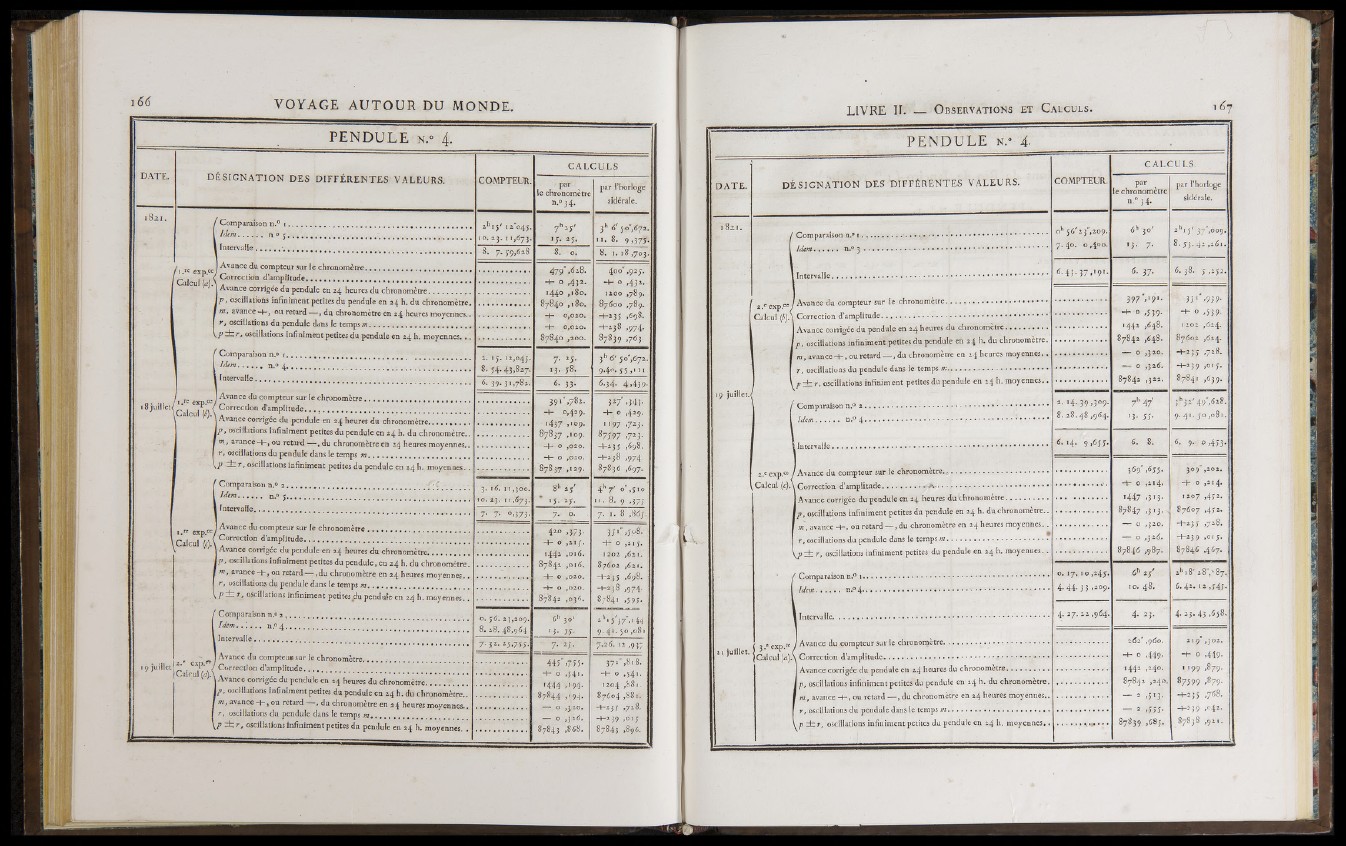 166 VOYAGE AUTOUR DU MONDE.
PENDULE N.° 4.
DATE. DÉSIGNATION DES DIFFÉRENTES VALEURS. COMPTEUR. CALCULS
par le chronomètre n.° 34. par l'horloge sidérale.
1821.
18 juillet.
1.re exp.ce Calcul (a).
Comparaison n.° 1 2h 15' 12",045. 7h 25' 3h 6' 50",672.
Idem n.° 5 10. 23. 11,673. 15. 25. 11. 8. 9 ,375.
Intervalle 8. 7. 59,628 8. 0. 8. 1. 18 ,703.
Avance du compteur sur le chronomètre 479" ,628. 400" ,925.
Correction d'amplitude + 0 ,432. + 0 ,432.
Avance corrigée du pendule en 24 heures du chronomètre 1440 ,180. 1200 ,789.
p, oscillations infiniment petites du pendule en 24 h. du chronomètre. 87840 ,180. 87600 ,789.
m, avance +, ou retard —, du chronomètre en 24 heures moyennes.. + 0,020. +235 ,698.
r, oscillations du pendule dans le temps m + 0,020. +238 ,974.
p ± r, oscillations infiniment petites du pendule en 24 h. moyennes. . 87840 ,200. 87839 ,763.
1.re exp.ce Calcul (b).
Comparaison n.° 1 2. 15. 12,045. 7. 25. 3h 6' 50",672.
Idem n.° 4 8. 54. 43,827. 13. 58. 9.40. 55 ,111
Intervalle 6. 39. 31,782. 6. 33. 6.34. 4,439.
Avance du compteur sur le chronomètre 391" ,782. 327" ,343.
Correction d'amplitude + 0,429. + 0 ,429.
Avance corrigée du pendule en 24 heures du chronomètre 1437 ,109. 1197 ,723.
p, oscillations infiniment petites du pendule en 24 h. du chronomètre.. 87837 ,109. 87597 ,723.
m, avance +, ou retard —, du chronomètre en 24 heures moyennes.. + 0 ,020. +235 ,698.
r, oscillations du pendule dans le temps m + 0 ,020. +238 ,974
p ± r, oscillations infiniment petites du pendule en 24 h. moyennes. . 87837 ,129. 87836 ,697.
1.re exp.ce Calcul (c).
Comparaison n.° 2 3. 16. 11,300. 8h 25' 4h 7' 0",510
Idem n.° 5 10. 23. 11,673. 15. 25. 11. 8. 9 ,375
Intervalle 7. 7. 0,373. 7. 0. 7. 1. 8 ,865
Avance du compteur sur le chronomètre 420 ,373. 351" ,508.
Correction d'amplitude + 0 ,215. + 0 ,215.
Avance corrigée du pendule en 24 heures du chronomètre 1442 ,016. 1202 ,621.
p, oscillations infiniment petites du pendule, en 24 h. du chronomètre 87842 ,016. 87602 ,621.
m, avance +, ou retard —, du chronomètre en 24 heures moyennes.. + 0 ,020. +235 ,698.
r, oscillations du pendule dans le temps m + 0 ,020. +238 ,974
p ± r, oscillations infiniment petites du pendule en 24 h. moyennes. . 87842 ,036. 87841 ,595.
19 juillet 2.e exp.ce Calcul (a).
Comparaison n.° 2 0. 56. 23,209. 6h 30' 2h 15' 37",144
Idem n.° 4 8. 28. 48,964 13. 55. 9. 41. 50 ,081
Intervalle 7. 32. 25,755. 7. 25. 7.26. 12 ,937
Avance du compteur sur le chronomètre 445" ,755. 372" ,818.
Correction d'amplitude + 0 ,341. + 0 ,341.
Avance corrigée du pendule en 24 heures du chronomètre 1444 ,194. 1204 ,881.
p, oscillations infiniment petites du pendule en 24 h. du chronomètre.. 87844 ,194. 87604 ,881.
m, avance +, ou retard —, du chronomètre en 24 heures moyennes.. — 0 ,320. +235 ,728.
r, oscillations du pendule dans le temps m — 0 ,326. +239 ,015
p ± r, oscillations infiniment petites du pendule en 24 h. moyennes. . 87843 ,868. 87843 ,896.
LIVRE II. — OBSERVATIONS ET CALCULS. 167
PENDULE N.° 4.
DATE. DÉSIGNATION DES DIFFÉRENTES VALEURS. COMPTEUR. CALCULS.
par le chronomètre n.° 34. par l'horloge sidérale.
1821.
19 juillet.
2.e exp.ce Calcul (b).
Comparaison n.° 1 0h 56' 23",209. 6h 30' 2h 15' 37",009.
Idem n.° 3 7. 40. 0 ,400. 13. 7. 8. 53. 42 ,261.
Intervalle 6. 43. 37 ,191. 6. 37. 6. 38. 5 ,252.
Avance du compteur sur le chronomètre 397" ,191. 331" ,939.
Correction d'amplitude + 0 ,539. + 0 ,539.
Avance corrigée du pendule en 24 heures du chronomètre 1442 ,648. 1202 ,624.
p, oscillations infiniment petites du pendule en 24 h. du chronomètre. 87842 ,648. 87602 ,624.
m, avance +, ou retard —, du chronomètre en 24 heures moyennes.. — 0 ,320. +235 ,728.
r, oscillations du pendule dans le temps m — 0 ,326. +239 ,015.
p ± r, oscillations infiniment petites du pendule en 24 h. moyennes. . 87842 ,322. 87841 ,639.
2.e exp.ce Calcul (c).
Comparaison n.° 2 2. 14. 39 ,309. 7h 47' 3h 32' 49",628.
Idem n.° 4 8. 28. 48 ,964. 13. 55. 9. 41. 50 ,081.
Intervalle 6. 14. 9 ,655. 6. 8. 6. 9. 0 ,453.
Avance du compteur sur le chronomètre 369" ,655. 309" ,202.
Correction d'amplitude + 0 ,214. + 0 ,214.
Avance corrigée du pendule en 24 heures du chronomètre 1447 ,313. 1207 ,452.
p, oscillations infiniment petites du pendule en 24 h. du chronomètre.. 87847 ,313. 87607 ,452.
m, avance +, ou retard —, du chronomètre en 24 heures moyennes.. — 0 ,320. +235 ,728.
r, oscillations du pendule dans le temps m — 0 ,326. +239 ,015.
p ± r, oscillations infiniment petites du pendule en 24 h. moyennes. . 87846 ,987. 87846 ,467.
21 juillet. 3.e exp.ce Calcul (a).
Comparaison n.° 1 0. 17. 10 ,245. 6h 25' 2h 18' 28",887.
Idem n.° 4 4. 44. 33 ,209. 10. 48. 6. 42. 12 ,545.
Intervalle 4. 27. 22 ,964. 4. 23. 4. 23. 43 ,658.
Avance du compteur sur le chronomètre 262" ,960. 219" ,302.
Correction d'amplitude + 0 ,449. + 0 ,449.
Avance corrigée du pendule en 24 heures du chronomètre 1442 ,240. 1199 ,879.
p, oscillations infiniment petites du pendule en 24 h. du chronomètre. 87842 ,240. 87599 ,879.
m, avance +, ou retard —, du chronomètre en 24 heures moyennes.. — 2 ,513. +235 ,768.
r, oscillations du pendule dans le temps m — 2 ,555. +239 ,042.
p ± r, oscillations infiniment petites du pendule en 24 h. moyennes. . 87839 ,685. 87838 ,921.